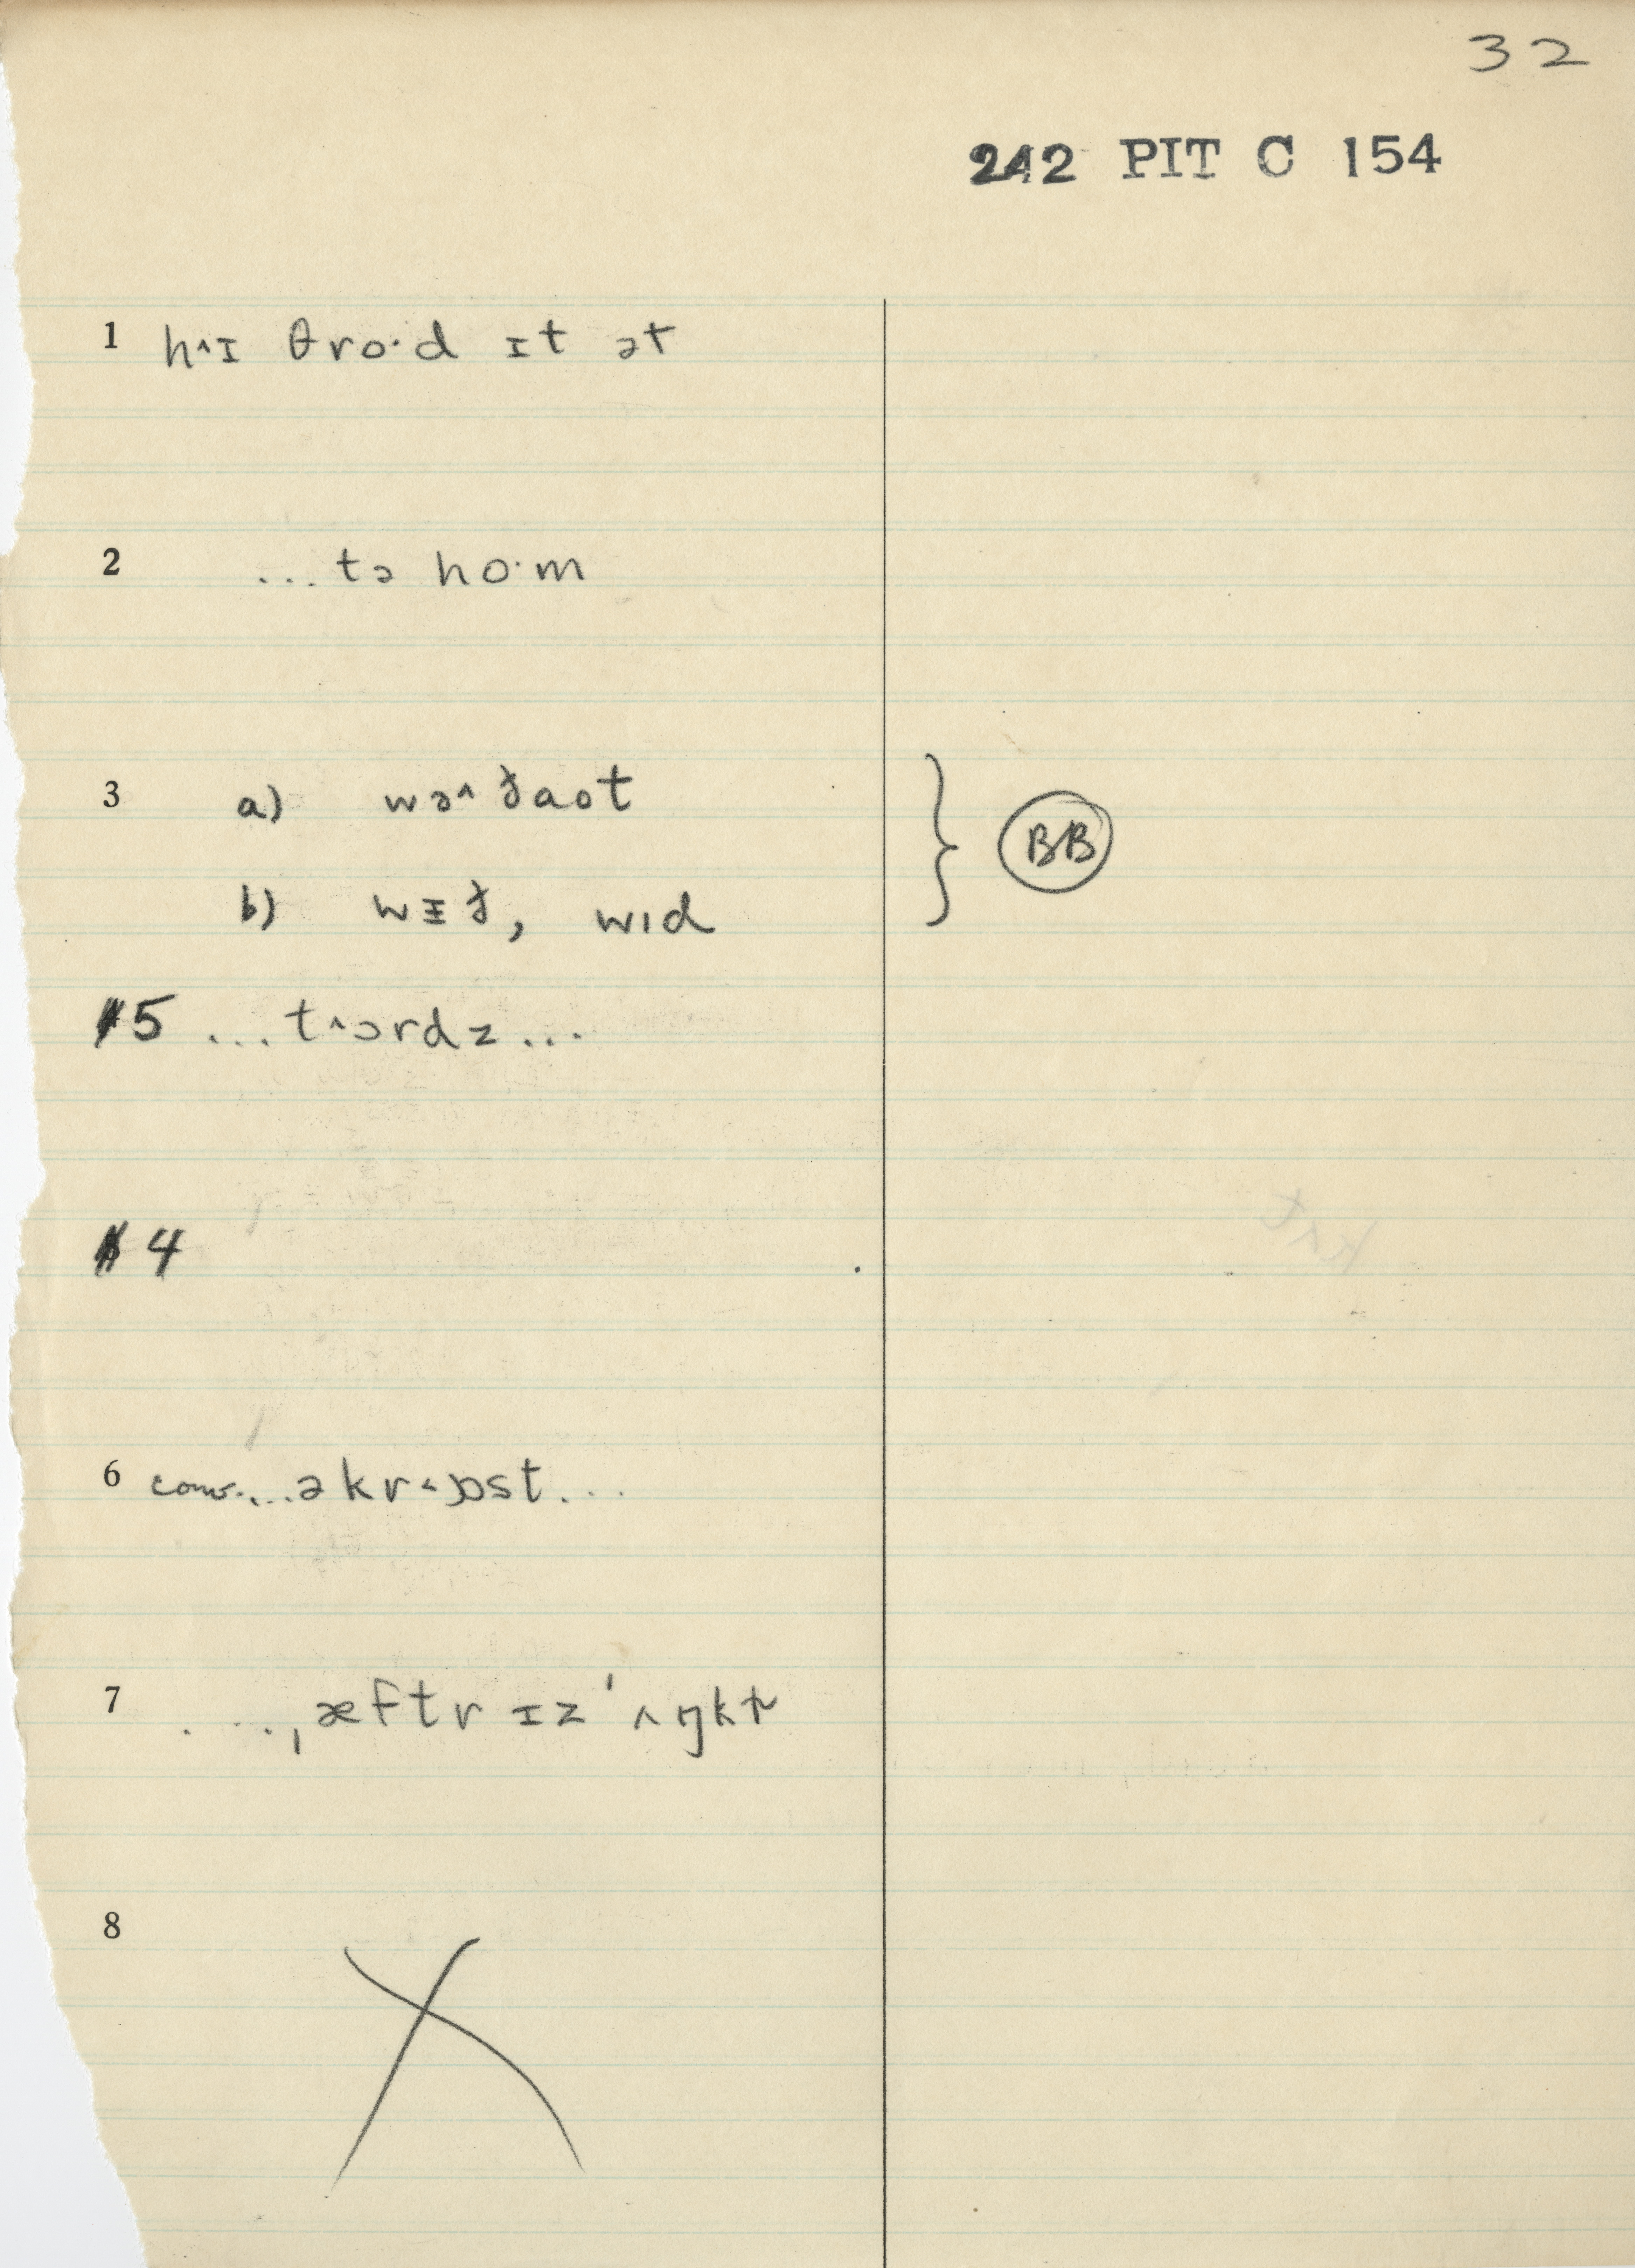 32
242 PIT C 154
1 h˄ɪ θro·d ɪt ət
2 ...tə ho·m
3 a) wə˄ðaot
BB
b) wɪ̵ð, wɪd
5 ...t˄ərdz...
4
6 conv....əkr˂ɒst...
7 ....,æftr ɪz 'ʌŋkḷ
8